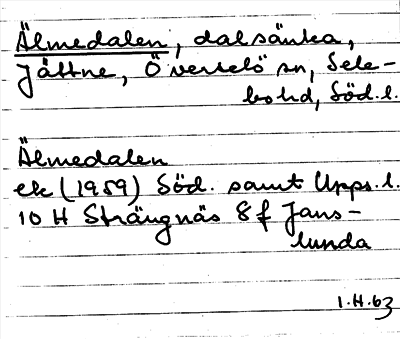 Älmedalen, dalsänka,
Jättne, Överselö sn, Sele-
bo hd, Söd. l.
Älmedalen
ek (1959) Söd. samt Upps. l.
10 H Strängnäs 8 f Jans-
lunda
1.H.63